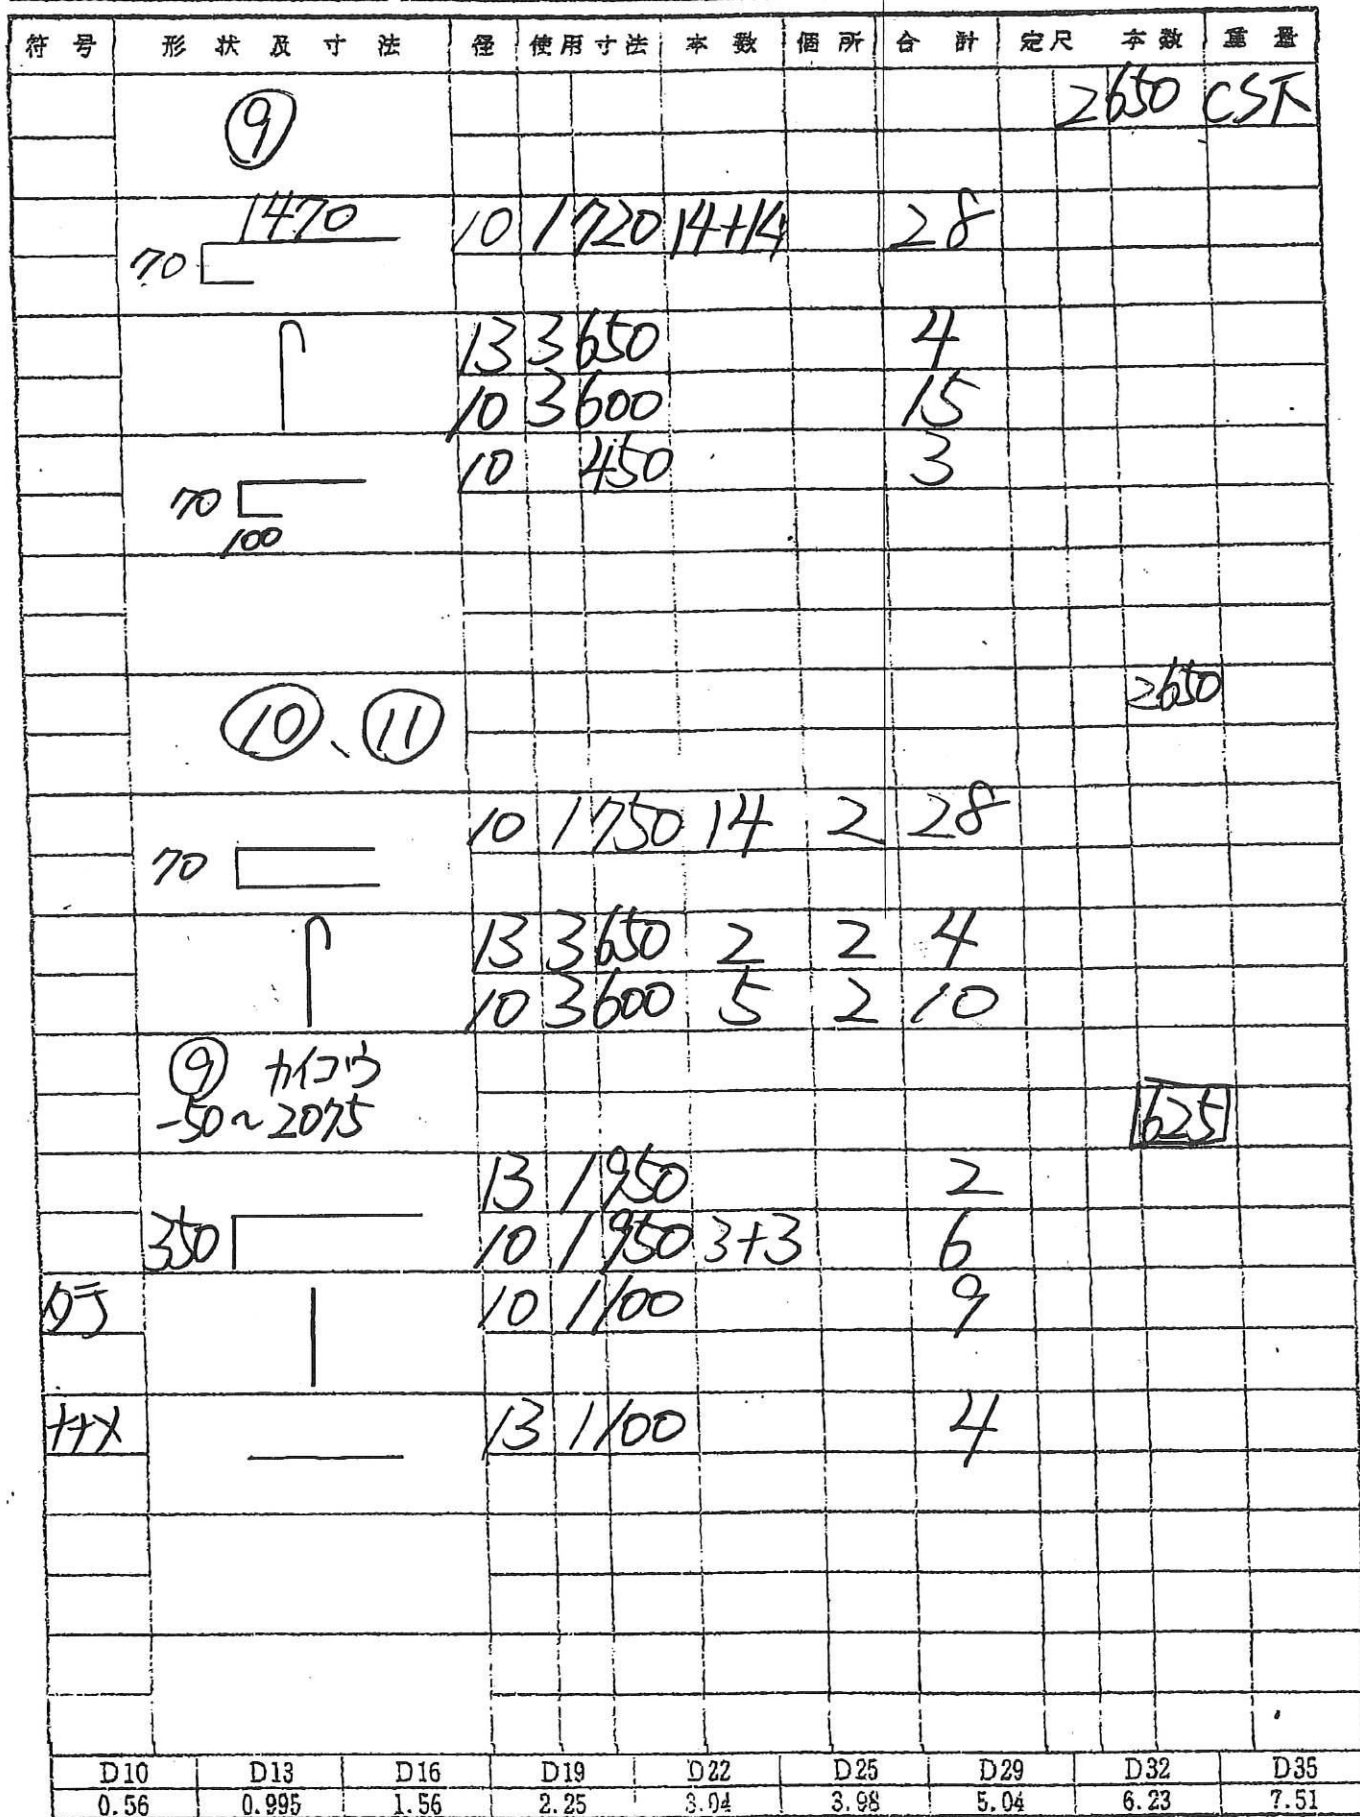 符号 形状及寸法 径 使用寸法 本数 個所 合計 定尺 本数 重量
⑨ 2650 CS下
1470 10 1720 14+14 28
70
13 3650 4
10 3600 15
10 450 3
70
100
⑩、⑪ 2650
10 1750 14 2 28
70
13 3650 2 2 4
10 3600 5 2 10
⑨ カイコウ
-50~2075 625
13 1950 2
350 10 1950 3+3 6
タテ 10 1100 9
ナナメ 13 1100 4
D10 D13 D16 D19 D22 D25 D29 D32 D35
0.56 0.995 1.56 2.25 3.04 3.98 5.04 6.23 7.51